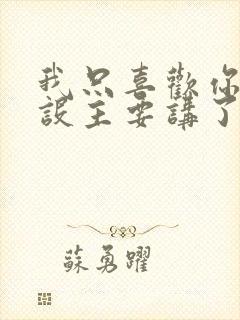 我只喜歡你
設主要講了
蘇勇躍